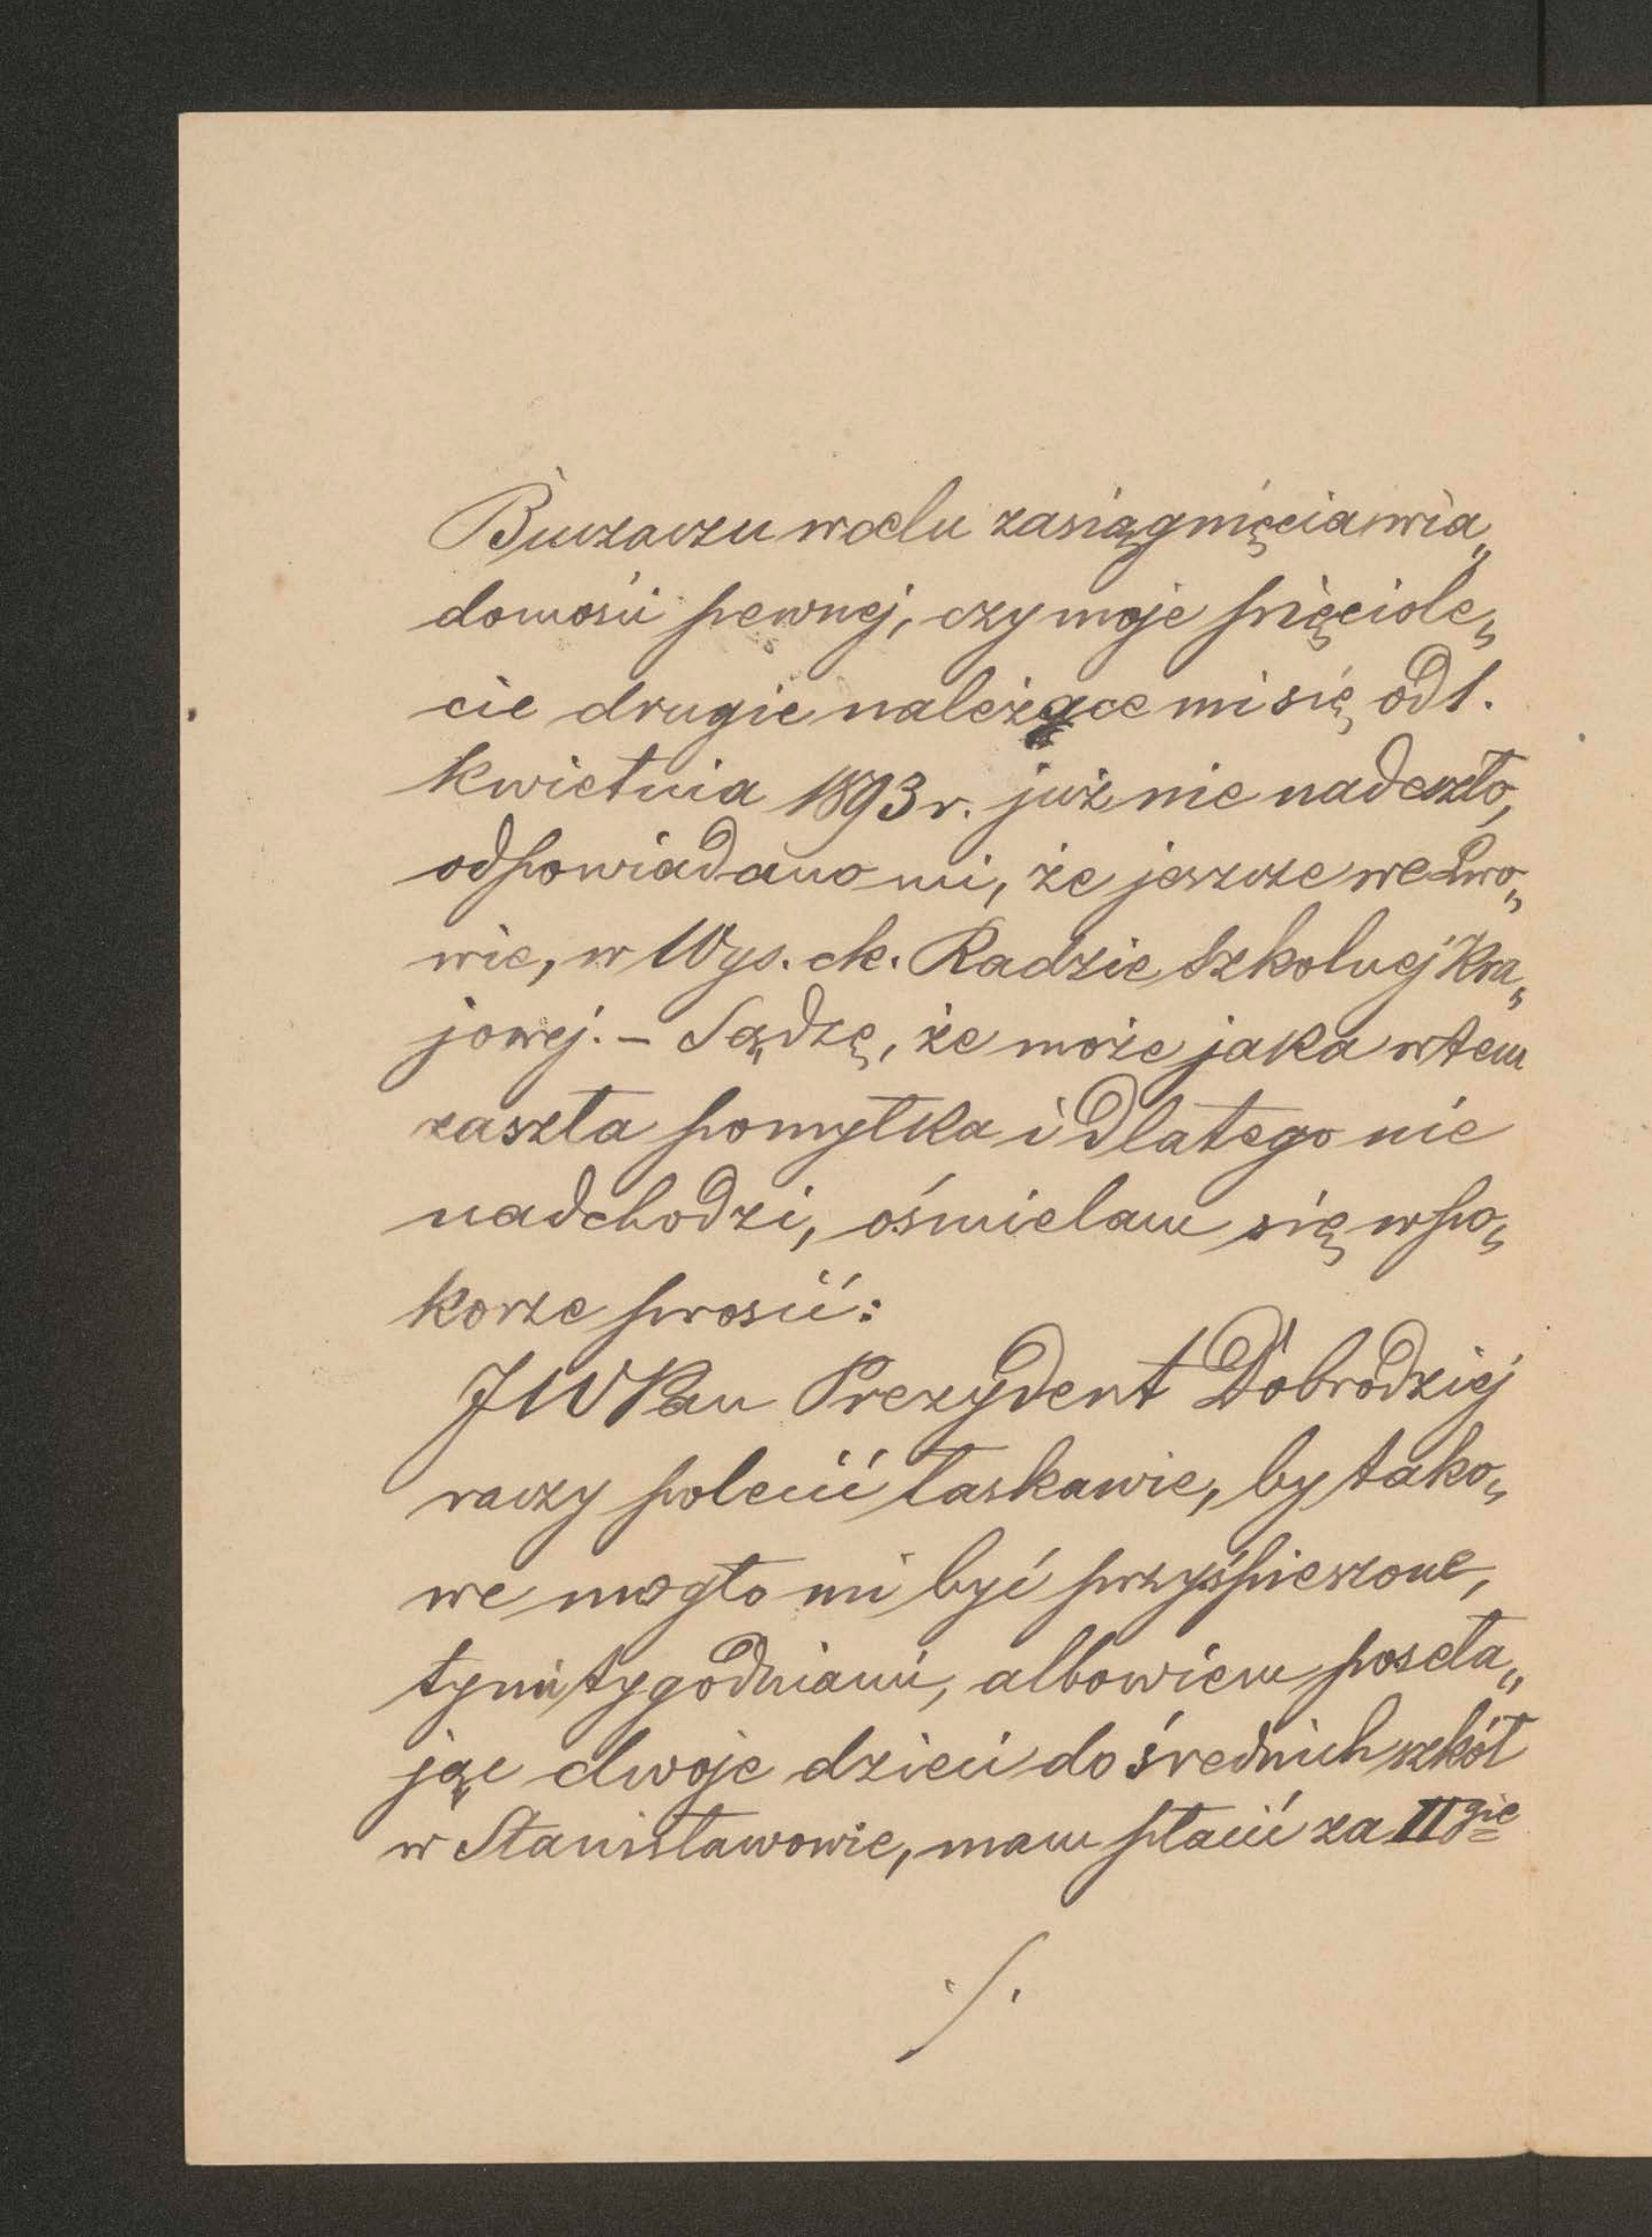 Buczaczu w celu zasiągnięcia wia„
domości pewnej, czy moje pięciole„
cie drugie należące mi się od 1.
kwietnia 1893 r. już nie nadeszło,
odpowiadano mi, że jeszcze we Lwo„
wie, w Wys. ck. Radzie Szkolnej Kra„
jowej. – Sądzę, że może jaka w tem
zaszła pomyłka i dlatego nie
nadchodzi, ośmielam się w po„
korze prosić:
JWPan Prezydent Dobrodziej
raczy polecić łaskawie, by tako„
we mogło mi być przyśpieszone,
tymi tygodniami, albowiem poseła„
jąc dwoje dzieci do średnich szkół
w Stanisławowie, mam płacić za II gie
./.